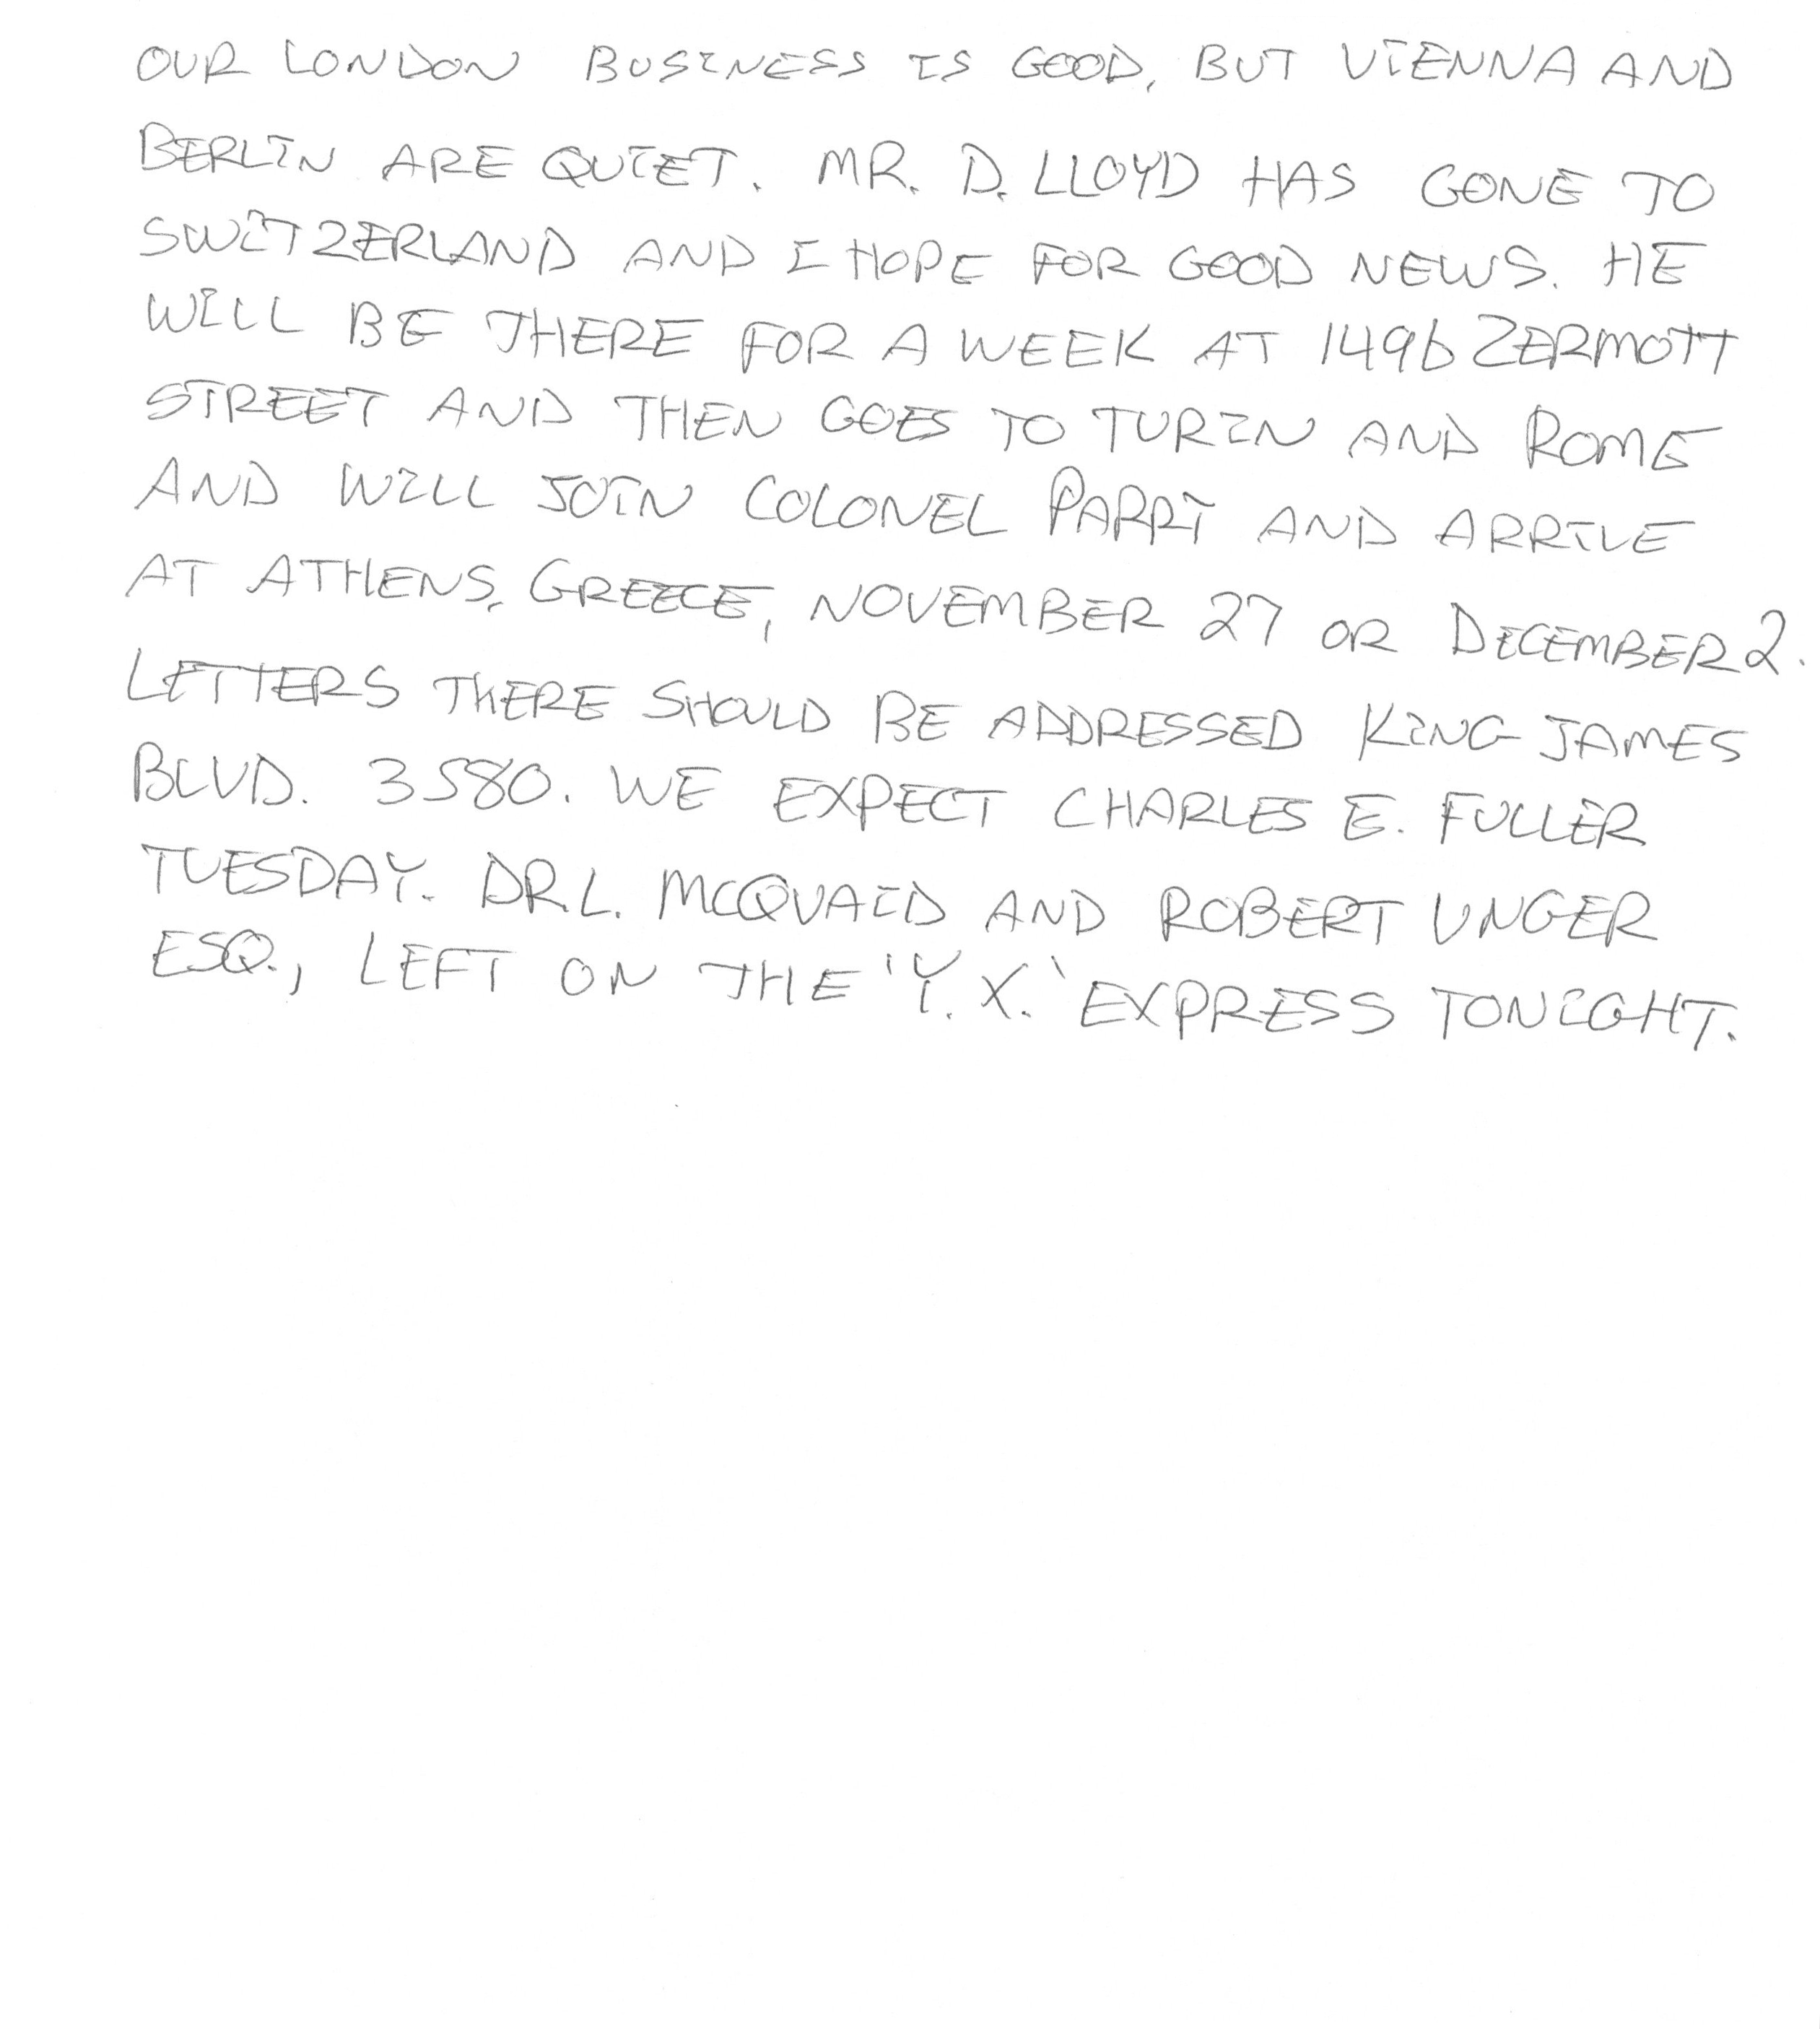 OUR LONDON BUSINESS IS GOOD, BUT VIENNA AND
BERLIN ARE QUIET. MR. D. LLOYD HAS GONE TO
SWITZERLAND AND I HOPE FOR GOOD NEWS. HE
WILL BE THERE FOR A WEEK AT 1496 ZERMOTT
STREET AND THEN GOES TO TURIN AND ROME
AND WILL JOIN COLONEL PARRY AND ARRIVE
AT ATHENS, GREECE, NOVEMBER 27 OR DECEMBER 2.
LETTERS THERE SHOULD BE ADDRESSED KING JAMES
BLVD. 3580. WE EXPECT CHARLES E. FULLER
TUESDAY. DR. L. MCQUAID AND ROBERT UNGER
ESQ., LEFT ON THE 'Y.X.' EXPRESS TONIGHT.